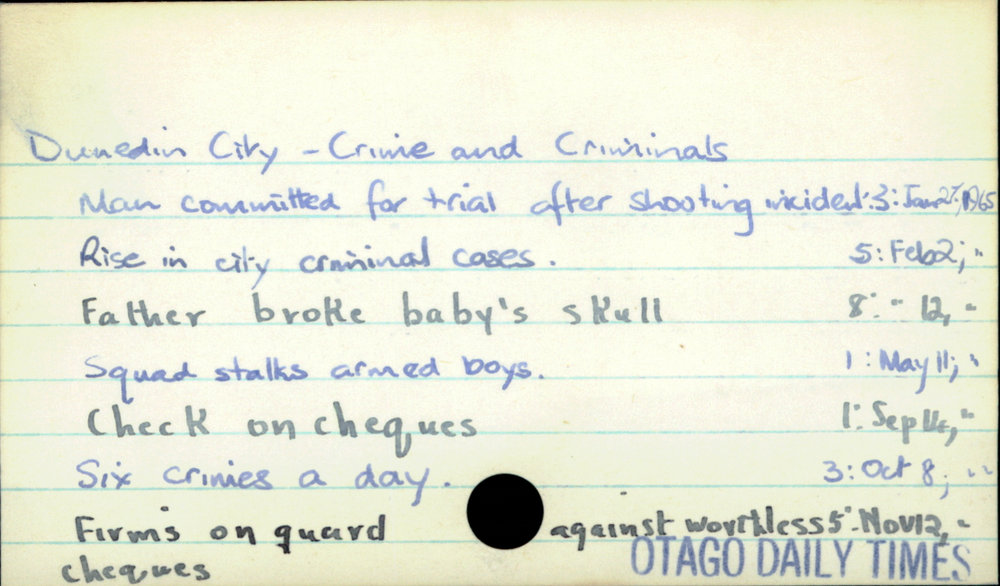 Dunedin City - Crime and Criminals
Man committed for trial after shooting incident: 3: Jan 27, 1965
Rise in city criminal cases. 5: Feb 2; "
Father broke baby's skull 8: " 12, "
Squad stalks armed boys. 1: May 11; "
Check on cheques 1: Sep 14, "
Six crimes a day. 3: Oct 8; "
Firms on guard against worthless 5: Nov 12, "
cheques
OTAGO DAILY TIMES